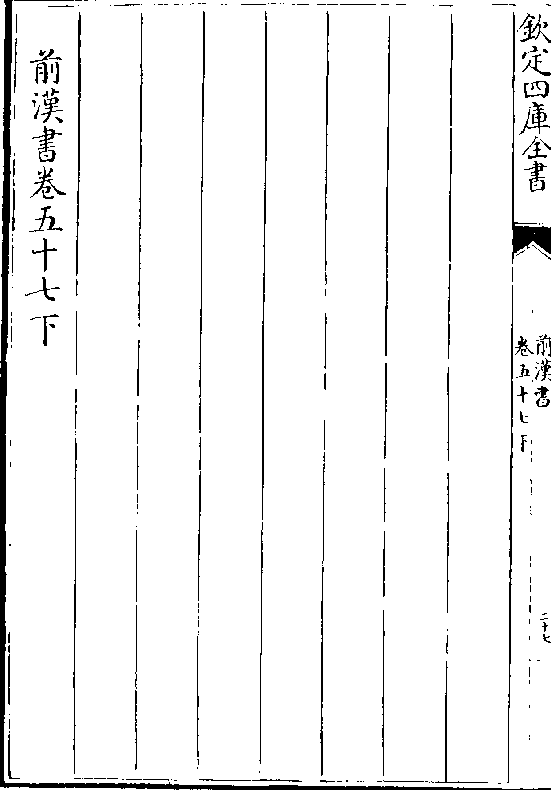 欽定四庫全書
前漢書
卷五十七下
二十七
前漢書卷五十七下